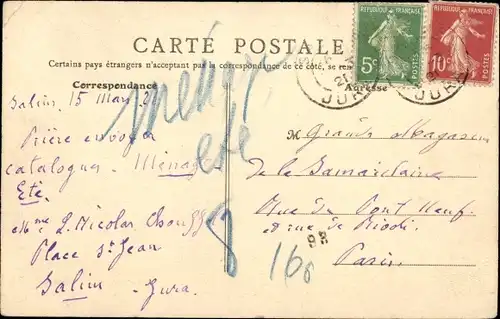 CARTE POSTALE
Certains pays étrangers n'acceptant pas la correspondance de ce côté, se
Correspondance
Adresse
RÉPUBLIQUE FRANÇAISE
5c
POSTES
RÉPUBLIQUE FRANÇAISE
10c
POSTES
JURA
JURA
Salins, 15 Mars
Prière envoyer
catalogues. Ménage
Eté.
Mme L. Nicolas
Place St Jean
Salins Jura.
ménage
été
166
M Grands Magasins
de la Samaritaine
Rue du Pont Neuf
et rue de Rivoli
Paris.